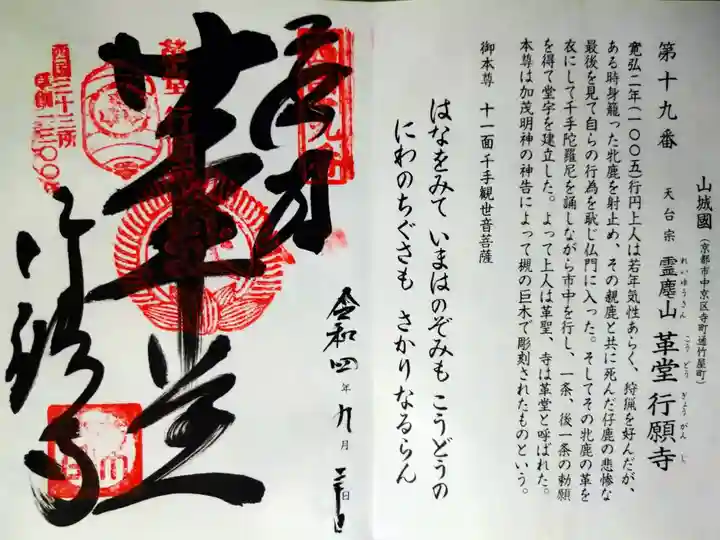 山城國(京都市中京区寺町通竹屋町)
第十九番 天台宗 霊麀山 革堂 行願寺
れいゆうさん こうどう ぎょうがんじ
寛弘二年(一〇〇五)行円上人は若年気性あらく、狩猟を好んだが、
ある時身籠った牝鹿を射止め、その親鹿と共に死んだ仔鹿の悲惨な
最後を見て自らの行為を恥じ仏門に入った。そしてその牝鹿の革を
衣にして千手陀羅尼を誦しながら市中を行し、一条、後一条の勅願
を得て堂宇を建立した。よって上人は革聖、寺は革堂と呼ばれた。
本尊は加茂明神の神告によって槻の巨木で彫刻されたものという。
御本尊 十一面千手観世音菩薩
はなをみて いまはのぞみも こうどうの
にわのちぐさも さかりなるらん
奉拝
革堂
行願寺
令和四年九月 日
西国三十三所
草創1300年